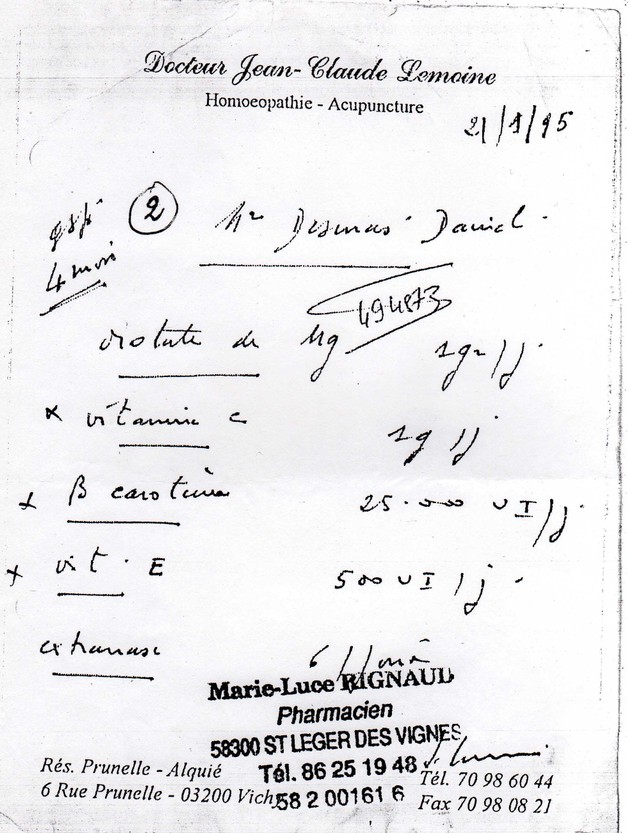 Docteur Jean-Claude Lemoine
Homoeopathie - Acupuncture
21/1/95
② Mr Desmas Daniel
4 mois
494873
orotate de Mg 1gr/j
x vitamine C 1g/j
+ β carotène 25.000 UI/j
+ vit. E 500 UI/j
extranase 6/
Marie-Luce RIGNAUD
Pharmacien
58300 ST LEGER DES VIGNES
Tél. 86 25 19 48
58 2 00161 6
Rés. Prunelle - Alquié
6 Rue Prunelle - 03200 Vichy
Tél. 70 98 60 44
Fax 70 98 08 21